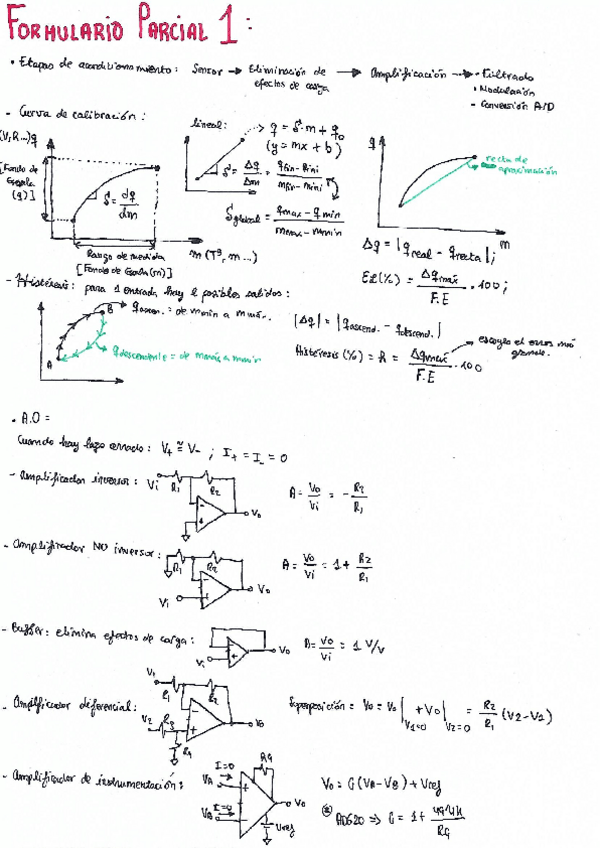 FORMULARIO PARCIAL 1:
• Etapas de acondicionamiento: Sensor → Eliminación de efectos de carga → Amplificación → • Filtrado
• Modulación
- Conversión A/D
- Curva de calibración:
(V, R...) q
[Fondo de Escala (q)]
S = dq/dm
Rango de medida
[Fondo de Escala (m)]
m (Tª, m ...)
lineal:
q = S·m + q0
(y = mx + b)
S = Δq/Δm = qfin - qini / mfin - mini
Sglobal = qmax - qmin / mmax - mmin
q
recta de aproximación
m
Δq = |qreal - qrecta|;
EL(%) = Δqmáx / F.E · 100;
- Histéresis: para 1 entrada hay 2 posibles salidas:
A
B
qascen. = de mmin a mmáx.
qdescendente = de mmáx a mmin
|Δq| = |qascend. - qdescend.|
Histéresis (%) = H = Δqmáx / F.E · 100
escojo el error más grande.
• A.O =
Cuando hay lazo cerrado: V+ ≅ V- ; I+ = I- = 0
- Amplificador inversor: Vi R1 R2 Vo
A = Vo/Vi = - R2/R1
- Amplificador NO inversor: R1 R2 Vi Vo
A = Vo/Vi = 1 + R2/R1
- Buffer: elimina efectos de carga: Vi Vo
A = Vo/Vi = 1 V/V
- Amplificador diferencial: V1 R1 R2 V2 R3 R4 Vo
Superposición = Vo = Vo|V1=0 + Vo|V2=0 = R2/R1 (V2 - V1)
- Amplificador de instrumentación: I=0 VA I=0 VB RG Vo Vref
Vo = G (VA - VB) + Vref
* AD620 ⇒ G = 1 + 49'4K / RG